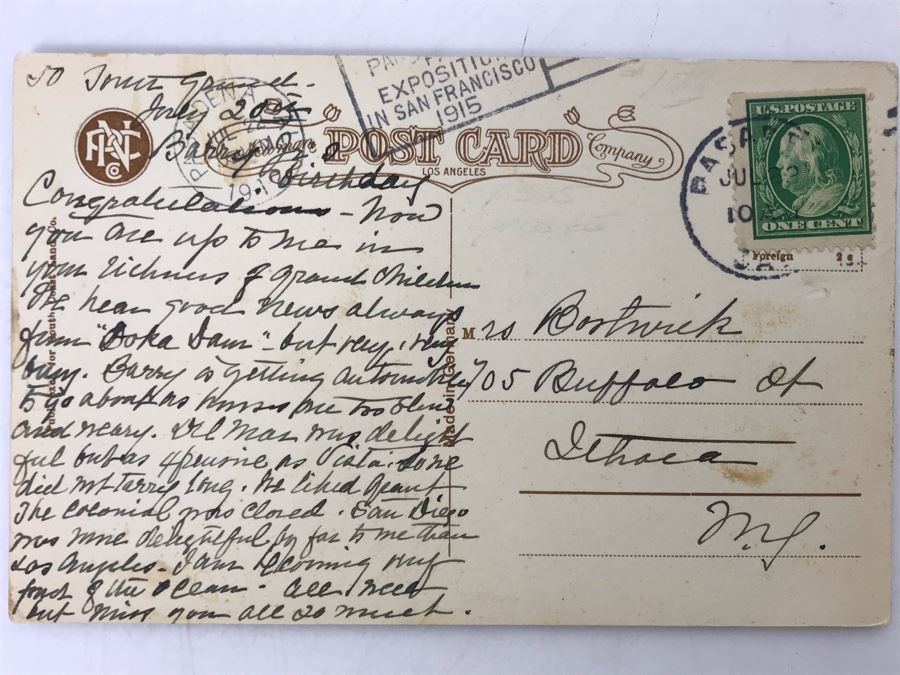 50 South Grand -
July 20th
Barry 720
birthday
Congratulations - Now
you are up to me in
your richness of grand children
We hear good news always
from "Boka Dam" - but very, very
busy. Barry is getting automobile
to go about as horses are troublesome
and weary. Del Mar was delight
ful but as expensive as Vista. So we
did not tarry long. We liked Grant
The Colonial was closed. San Diego
was more delightful by far to me than
Los Angeles - I am becoming very
fond of the ocean. All well
but miss you all so much.
EXPOSITION
IN SAN FRANCISCO
1915
PASADENA
JUL 22
19
N
Co
Newman POST CARD Company
LOS ANGELES
Made in Germany
PASADENA
JUL 22
10
CAL
U.S. POSTAGE
ONE CENT
Foreign 2c
Mrs Bostwick
705 Buffalo St
Ithaca
N.Y.